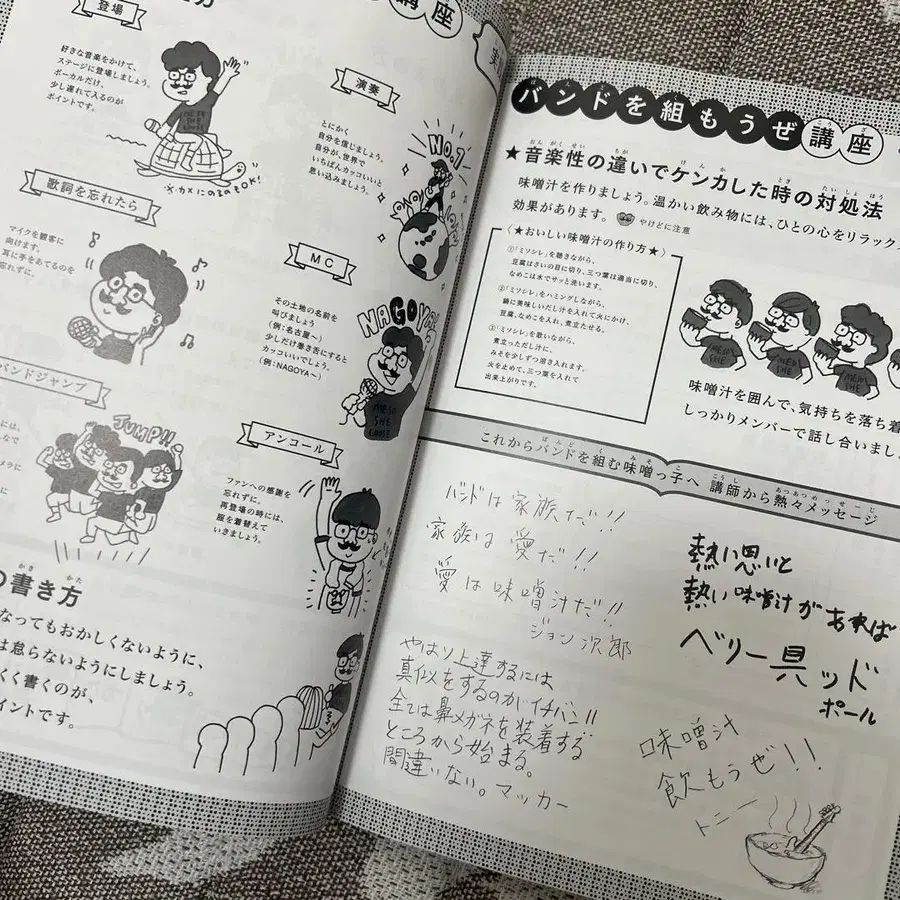 方
講座
登場
好きな音楽をかけて、
ステージに登場しましょう。
ボーカルだけ、
少し遅れて入るのが
ポイントです。
※カメにのるのもOK!
演奏
とにかく
自分を信じましょう。
自分が、世界で
いちばんカッコいいと
思い込みましょう。
No.1
歌詞を忘れたら
マイクを観客に
向けます。
耳に手をあてるのを
忘れずに。
MC
その土地の名前を
叫びましょう
(例:名古屋〜)
少しだけ巻き舌にすると
カッコいいでしょう。
(例:NAGOYA〜)
NAGOYA!
バンドジャンプ
JUMP!!
アンコール
ファンへの感謝を
忘れずに、
再登場の時には、
服を着替えて
いきましょう。
の書き方
なってもおかしくないように、
は怠らないようにしましょう。
くく書くのが、
イントです。
バンドを組もうぜ講座
★音楽性の違いでケンカした時の対処法
味噌汁を作りましょう。温かい飲み物には、ひとの心をリラックス
効果があります。 やけどに注意
〈★おいしい味噌汁の作り方★〉
①「ミソシレ」を聴きながら、
豆腐はさいの目に切り、三つ葉は適当に切り、
なめこは水でサッと洗います。
②「ミソシレ」をハミングしながら、
鍋に美味しいだし汁を入れて火にかけ、
豆腐、なめこを入れ、煮立たせる。
③「ミソシレ」を歌いながら、
煮立っただし汁に、
みそを少しずつ溶き入れます。
火を止めて、三つ葉を入れて
出来上がりです。
味噌汁を囲んで、気持ちを落ち着
しっかりメンバーで話し合いまし
これからバンドを組む味噌っ子へ 講師から熱々メッセージ
バンドは家族だ!!
家族は愛だ!!
愛は味噌汁だ!!
ジョン次郎
熱い思いと
熱い味噌汁があれば
ベリー具ッド
ポール
やはり上達するには
真似をするのがイチバン!!
全ては鼻メガネを装着する
ところから始まる。
間違いない。マッカー
味噌汁
飲もうぜ!!
トニー